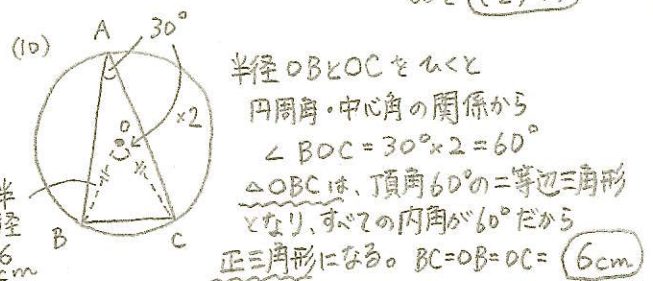 (10)
A
30°
O
×2
半径
6cm
B
C
半径OBとOCをひくと
円周角・中心角の関係から
∠BOC=30°×2=60°
△OBCは、頂角60°の二等辺三角形
となり、すべての内角が60°だから
正三角形になる。BC=OB=OC=6cm